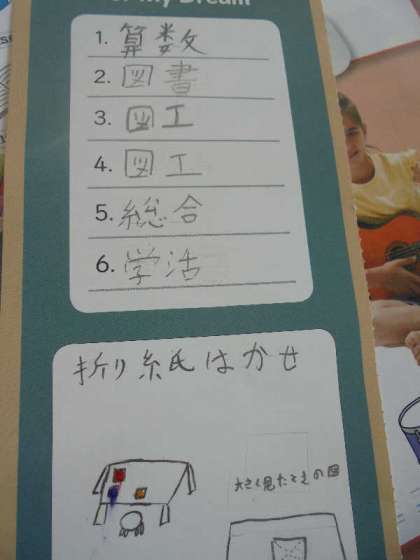 My Dream
1. 算数
2. 図書
3. 図工
4. 図工
5. 総合
6. 学活
折り紙はかせ
大きく見たときの図